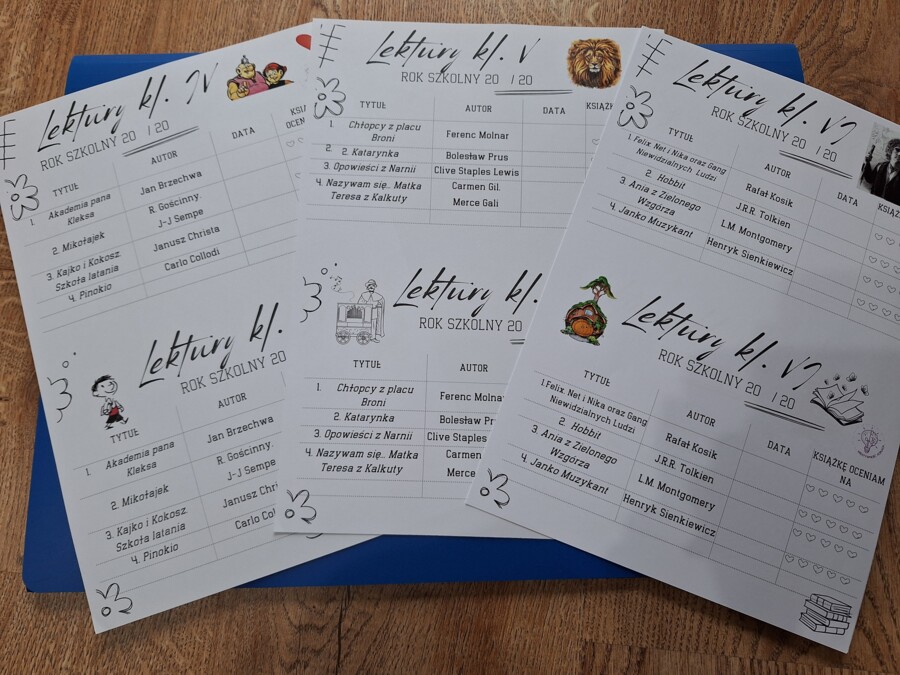 Lektury kl. IV
ROK SZKOLNY 20 / 20
TYTUŁ AUTOR DATA
OCENI
1. Akademia pana
Kleksa
Jan Brzechwa
2. Mikołajek
R. Gościnny.
J-J Sempe
3. Kajko i Kokosz.
Szkoła latania
Janusz Christa
4. Pinokio
Carlo Collodi
Lektury kl.
ROK SZKOLNY 20
TYTUŁ AUTOR
1. Akademia pana
Kleksa
Jan Brzechwa
2. Mikołajek
R. Gościnny.
J-J Sempe
3. Kajko i Kokosz
Szkoła latania
Janusz Chri
4. Pinokio
Carlo Col
Lektury kl. V
ROK SZKOLNY 20 / 20
TYTUŁ AUTOR DATA KSIĄŻK
1. Chłopcy z placu
Broni
Ferenc Molnar
2. 2. Katarynka
Bolesław Prus
3. Opowieści z Narnii
Clive Staples Lewis
4. Nazywam się.. Matka
Teresa z Kalkuty
Carmen Gil.
Merce Gali
Lektury kl.
ROK SZKOLNY 20
TYTUŁ AUTOR
1. Chłopcy z placu
Broni
Ferenc Molna
2. Katarynka
Bolesław Pr
3. Opowieści z Narnii
Clive Staples
4. Nazywam się.. Matka
Teresa z Kalkuty
Carmen
Merce
Lektury kl. VI
ROK SZKOLNY 20 / 20
TYTUŁ AUTOR DATA KSIĄŻ
1. Felix, Net i Nika oraz Gang
Niewidzialnych Ludzi
Rafał Kosik
2. Hobbit
J.R.R. Tolkien
3. Ania z Zielonego
Wzgórza
L.M. Montgomery
4. Janko Muzykant
Henryk Sienkiewicz
Lektury kl. VI
ROK SZKOLNY 20 / 20
TYTUŁ AUTOR DATA KSIĄŻKĘ OCENIAM
NA
1. Felix, Net i Nika oraz Gang
Niewidzialnych Ludzi
Rafał Kosik
2. Hobbit
J.R.R. Tolkien
3. Ania z Zielonego
Wzgórza
L.M. Montgomery
4. Janko Muzykant
Henryk Sienkiewicz